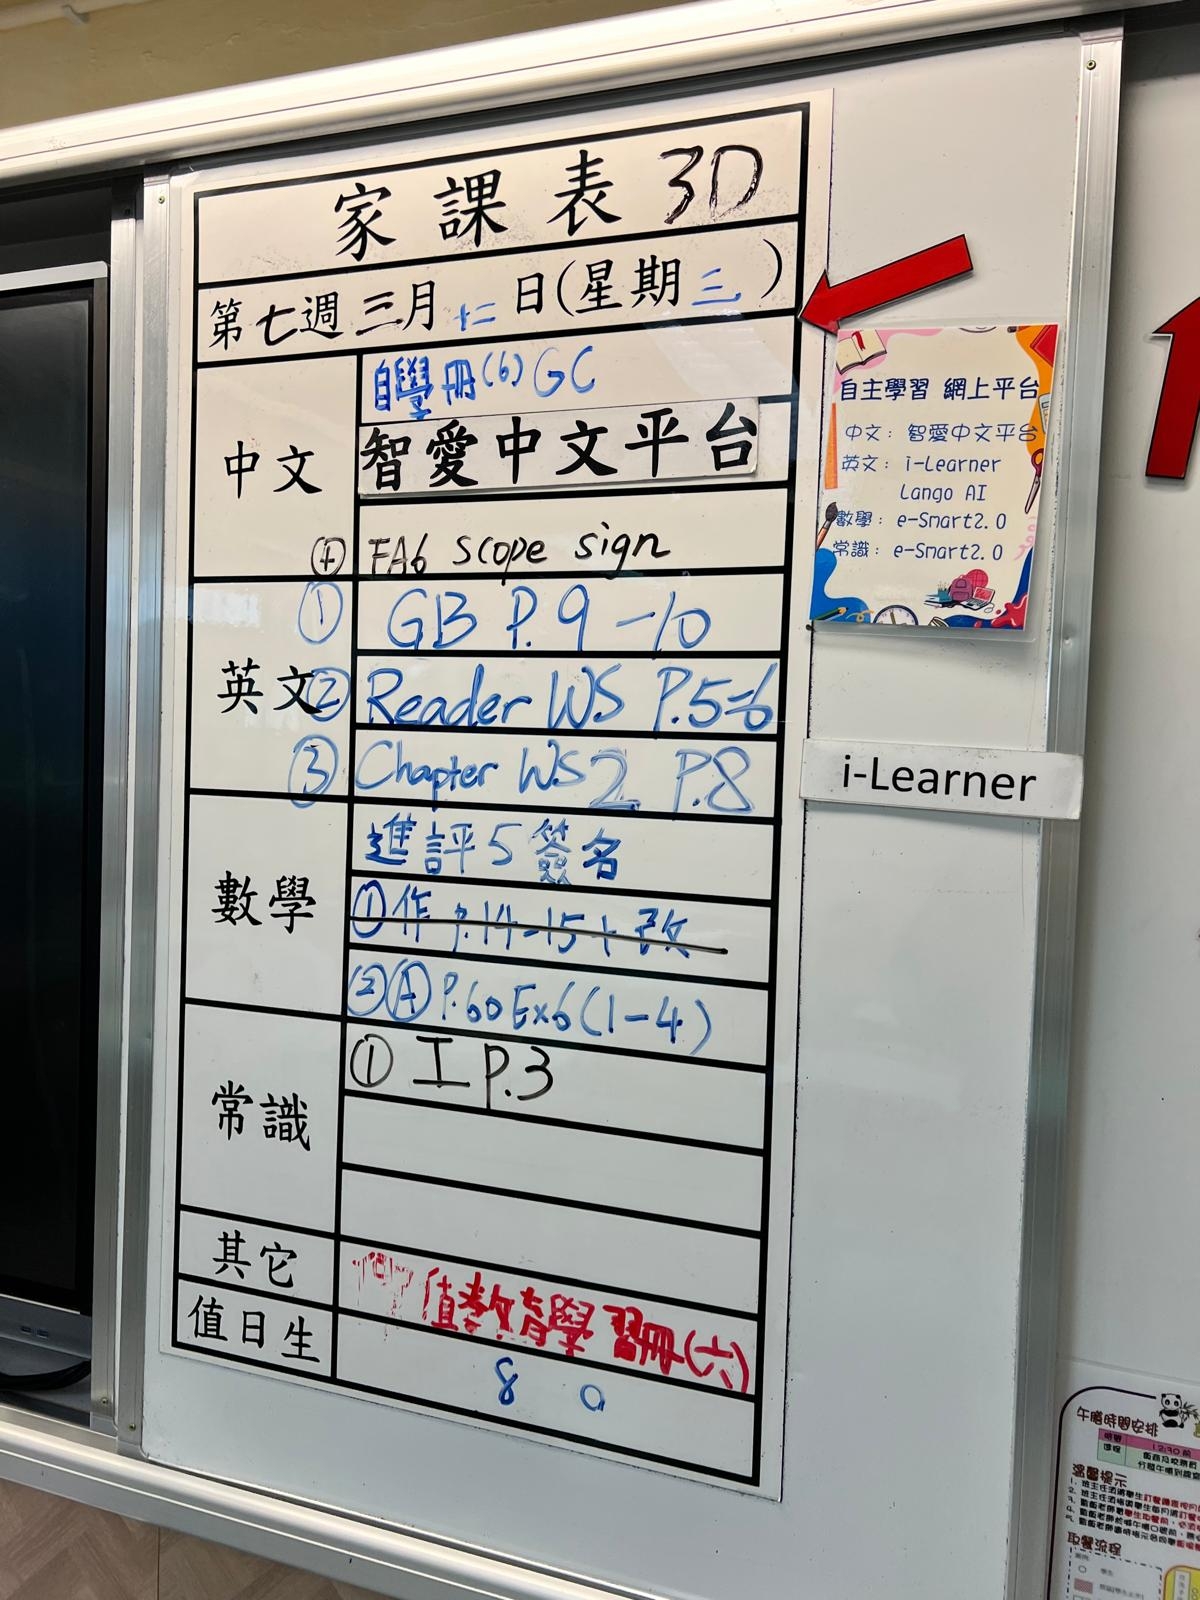 家課表 3D
第七週三月十二日(星期三)
中文
自學冊(6) GC
智愛中文平台
④ FA6 scope sign
英文
① GB P.9-10
② Reader WS P.5-6
③ Chapter WS 2 P.8
數學
進評5簽名
①作 P.14-15+改
②Ⓐ P.60 Ex6(1-4)
常識
① 工 P.3
其它
值教育學習冊(六)
值日生
8
自主學習 網上平台
中文: 智愛中文平台
英文: i-Learner
Lango AI
數學: e-Smart2.0
常識: e-Smart2.0
i-Learner
午膳時間安排
時間
12:30 前
溫馨提示
取餐流程